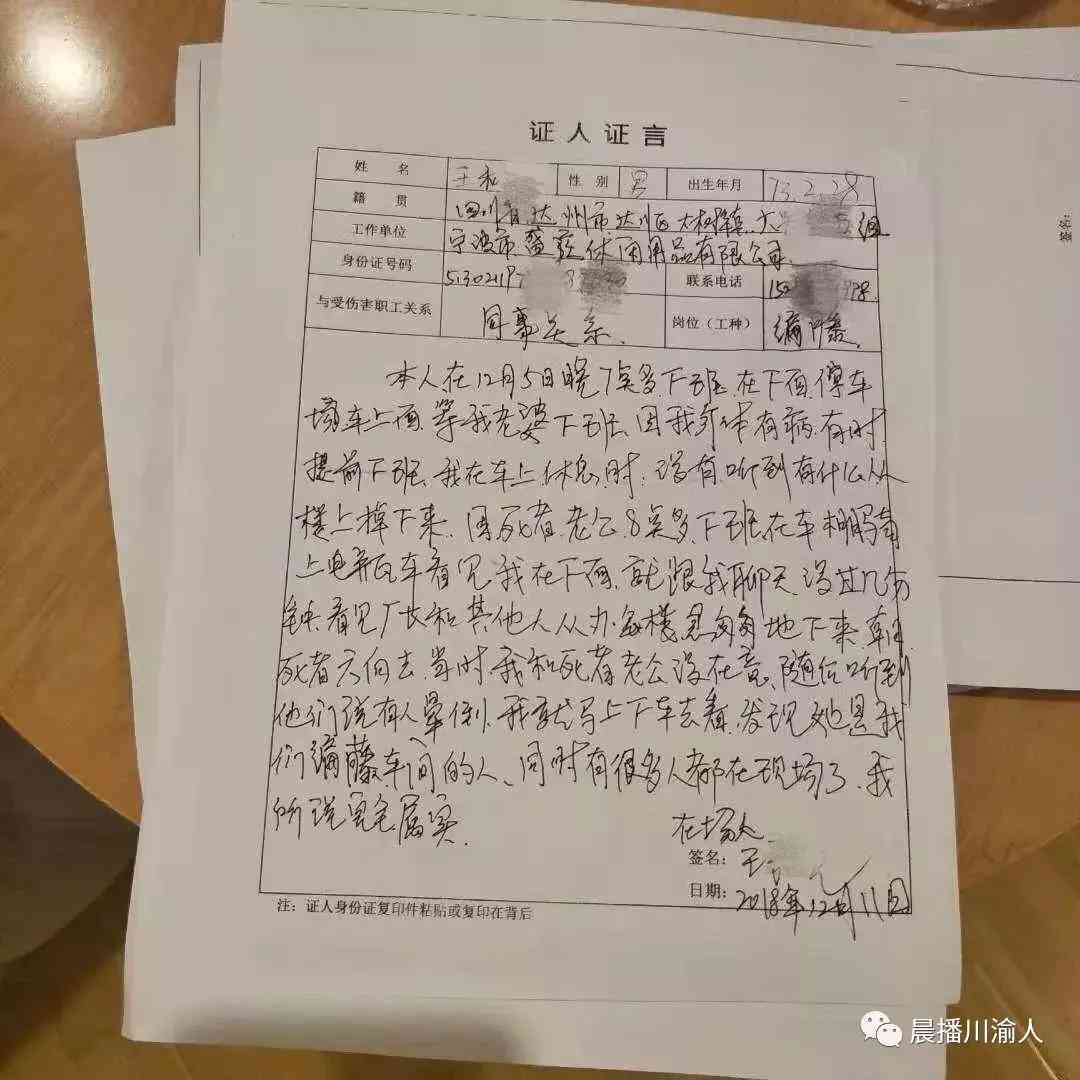 证人证言
姓 名 王 性 别 男 出生年月 73.2.28
籍 贯 四川省达州市达川区大树镇 组
工作单位 宁波市 休闲用品有限公司
身份证号码 513021197 联系电话 15 98
与受伤害职工关系 同事关系. 岗位（工种） 编藤
本人在12月5日晚7点多下班.在下面停车
场车上面.等我老婆下班.因我身体有病.有时
提前下班.我在车上休息时.没有听到有什么从
楼上掉下来.因死者老公8点多下班.在车棚骑
上电瓶车看见我在下面.就跟我聊天.没过几分
钟.看见厂长和其他人从办公楼急匆匆地下来.朝
死者方向去.当时.我和死者老公没在意.随后听到
他们说有人晕倒.我就马上下车去看.发现她是我
们编藤车间的人、同时有很多人都在现场了.我
所说完全属实.
在场人
签名： 王
日期： 2018年12月11日
注：证人身份证复印件粘贴或复印在背后
签名:
晨播川渝人